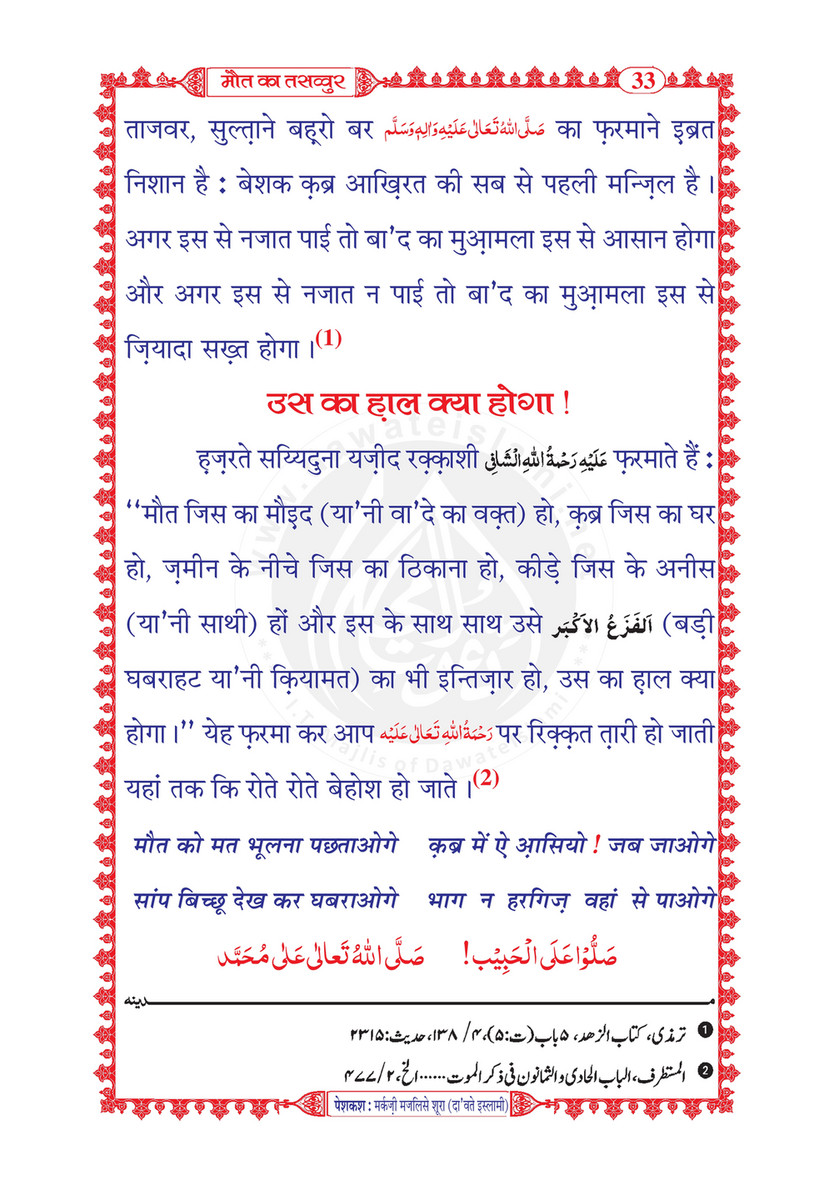 मौत का तसव्वुर
33
ताजवर, सुल्त़ाने बह़रो बर صَلَّى اللهُ تَعَالٰى عَلَيْهِ وَاٰلِهٖ وَسَلَّم का फ़रमाने इ़ब्रत
निशान है : बेशक क़ब्र आख़िरत की सब से पहली मन्ज़िल है ।
अगर इस से नजात पाई तो बा’द का मुआ़मला इस से आसान होगा
और अगर इस से नजात न पाई तो बा’द का मुआ़मला इस से
ज़ियादा सख़्त होगा ।(1)
उस का ह़ाल क्या होगा !
ह़ज़रते सय्यिदुना यज़ीद रक़्क़ाशी عَلَيْهِ رَحْمَةُ اللهِ الشَّافِى फ़रमाते हैं :
‘‘मौत जिस का मौइ़द (या’नी वा’दे का वक़्त) हो, क़ब्र जिस का घर
हो, ज़मीन के नीचे जिस का ठिकाना हो, कीड़े जिस के अनीस
(या’नी साथी) हों और इस के साथ साथ उसे اَلْفَزَعُ الْاَكْبَر (बड़ी
घबराहट या’नी क़ियामत) का भी इन्तिज़ार हो, उस का ह़ाल क्या
होगा ।’’ येह फ़रमा कर आप رَحْمَةُ اللهِ تَعَالٰى عَلَيْه पर रिक़्क़त त़ारी हो जाती
यहां तक कि रोते रोते बेहोश हो जाते ।(2)
मौत को मत भूलना पछताओगे क़ब्र में ऐ आ़सियो ! जब जाओगे
सांप बिच्छू देख कर घबराओगे भाग न हरगिज़ वहां से पाओगे
صَلُّوْا عَلَى الْحَبِيْب! صَلَّى اللهُ تَعَالٰى عَلٰى مُحَمَّد
مـــدینه
1 ترمذی، کتاب الزھد، ۵ باب (ت:۵)، ۴/ ۱۳۸، حدیث: ۲۳۱۵
2 المستطرف، الباب الحادی والثمانون فی ذکر الموت......الخ، ۲/ ۴۷۷
पेशकश : मर्कज़ी मजलिसे शूरा (दा’वते इस्लामी)
www.dawateislami.net
I.T. Majlis of DawateIslami